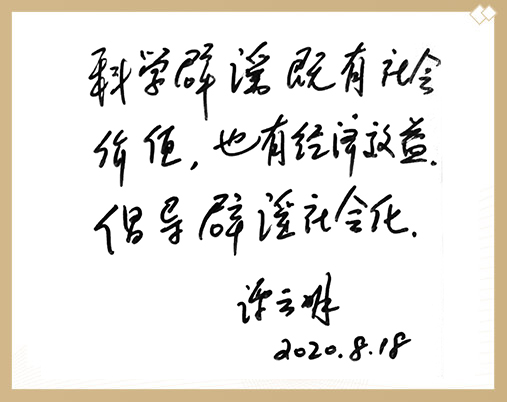 科学辟谣既有社会
价值，也有经济效益.
倡导辟谣社会化.
谭云明
2020.8.18